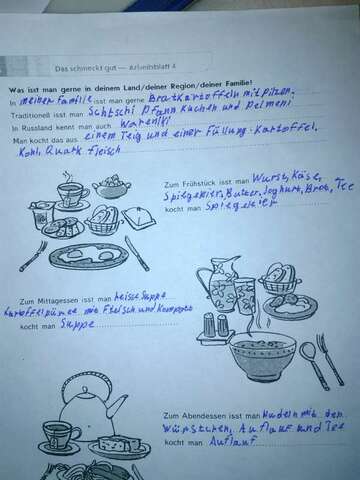 Das schmeckt gut — Arbeitsblatt 4
Was isst man gerne in deinem Land/deiner Region/deiner Familie?
In meiner Familie isst man gerne Bratkartoffeln mit pilzen.
Traditionell isst man Schtschi Pfannkuchen und Pelmeni
In Russland kennt man auch Wareniki
Man kocht das aus einem Teig und einer Füllung: Kartoffel,
Kohl, Quark Fleisch
Zum Frühstück isst man Wurst, Käse,
Spiegeleier, Butter, Joghurt, Brot, Tee
kocht man Spiegeleier
Zum Mittagessen isst man heisse Suppe
Kartoffelpüree mit Fleisch und Kompott
kocht man Suppe
Zum Abendessen isst man Nudeln mit den
Würstchen, Auflauf und Tee
kocht man Auflauf